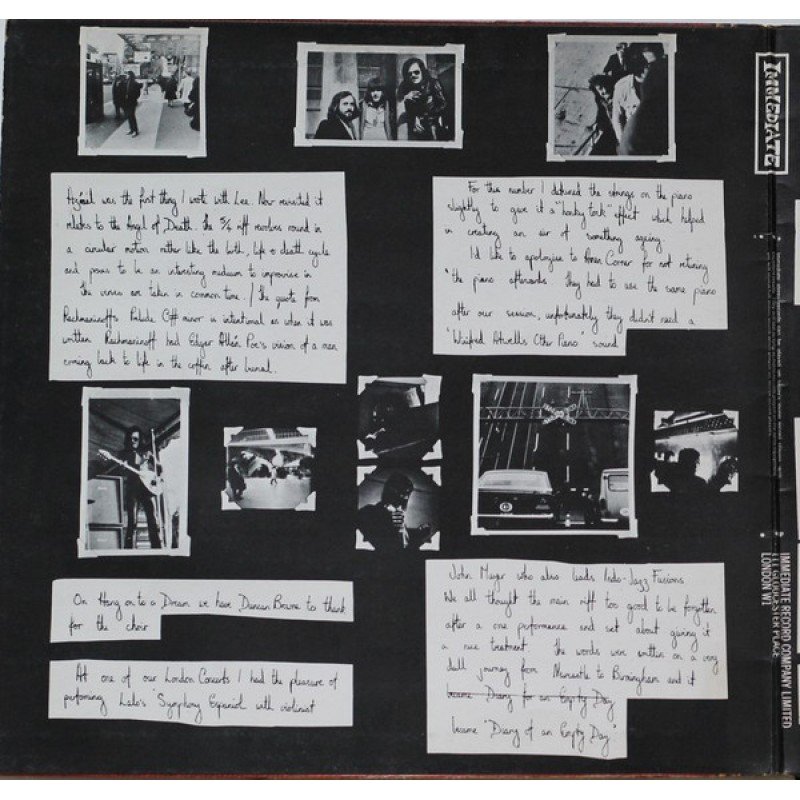 Azrael was the first thing I wrote with Lee. Now revisited it
relates to the Angel of Death. The 5/4 riff revolves round in
a circular motion rather like the birth, life & death cycle
and poses to be an interesting medium to improvise in
the verses are taken in common time / The quote from
Rachmaninoff's Prelude C# minor is intentional as when it was
written Rachmaninoff had Edgar Allan Poe's vision of a man
coming back to life in the coffin after burial.
For this number I detuned the strings on the piano
slightly to give it a "honky tonk" effect which helped
in creating an air of something ageing
I'd like to apologise to Amen Corner for not retuning
the piano afterwards they had to use the same piano
after our session, unfortunately they didn't need a
"Winifred Atwells Other Piano" sound
On Hang on to a Dream we have Duncan Browne to thank
for the choir
At one of our London Concerts I had the pleasure of
performing Lalo's Symphony Espaniol with violinist
John Mayer who also leads Indo-Jazz Fusions
We all thought the main riff too good to be forgotten
after a one performance and set about giving it
a nice treatment. The words were written on a very
dull journey from Newcastle to Birmingham and it
became Diary for an Empty Day
became "Diary of an Empty Day"
IMMEDIATE
IMMEDIATE RECORD COMPANY LIMITED
111 GLOUCESTER PLACE
LONDON W1